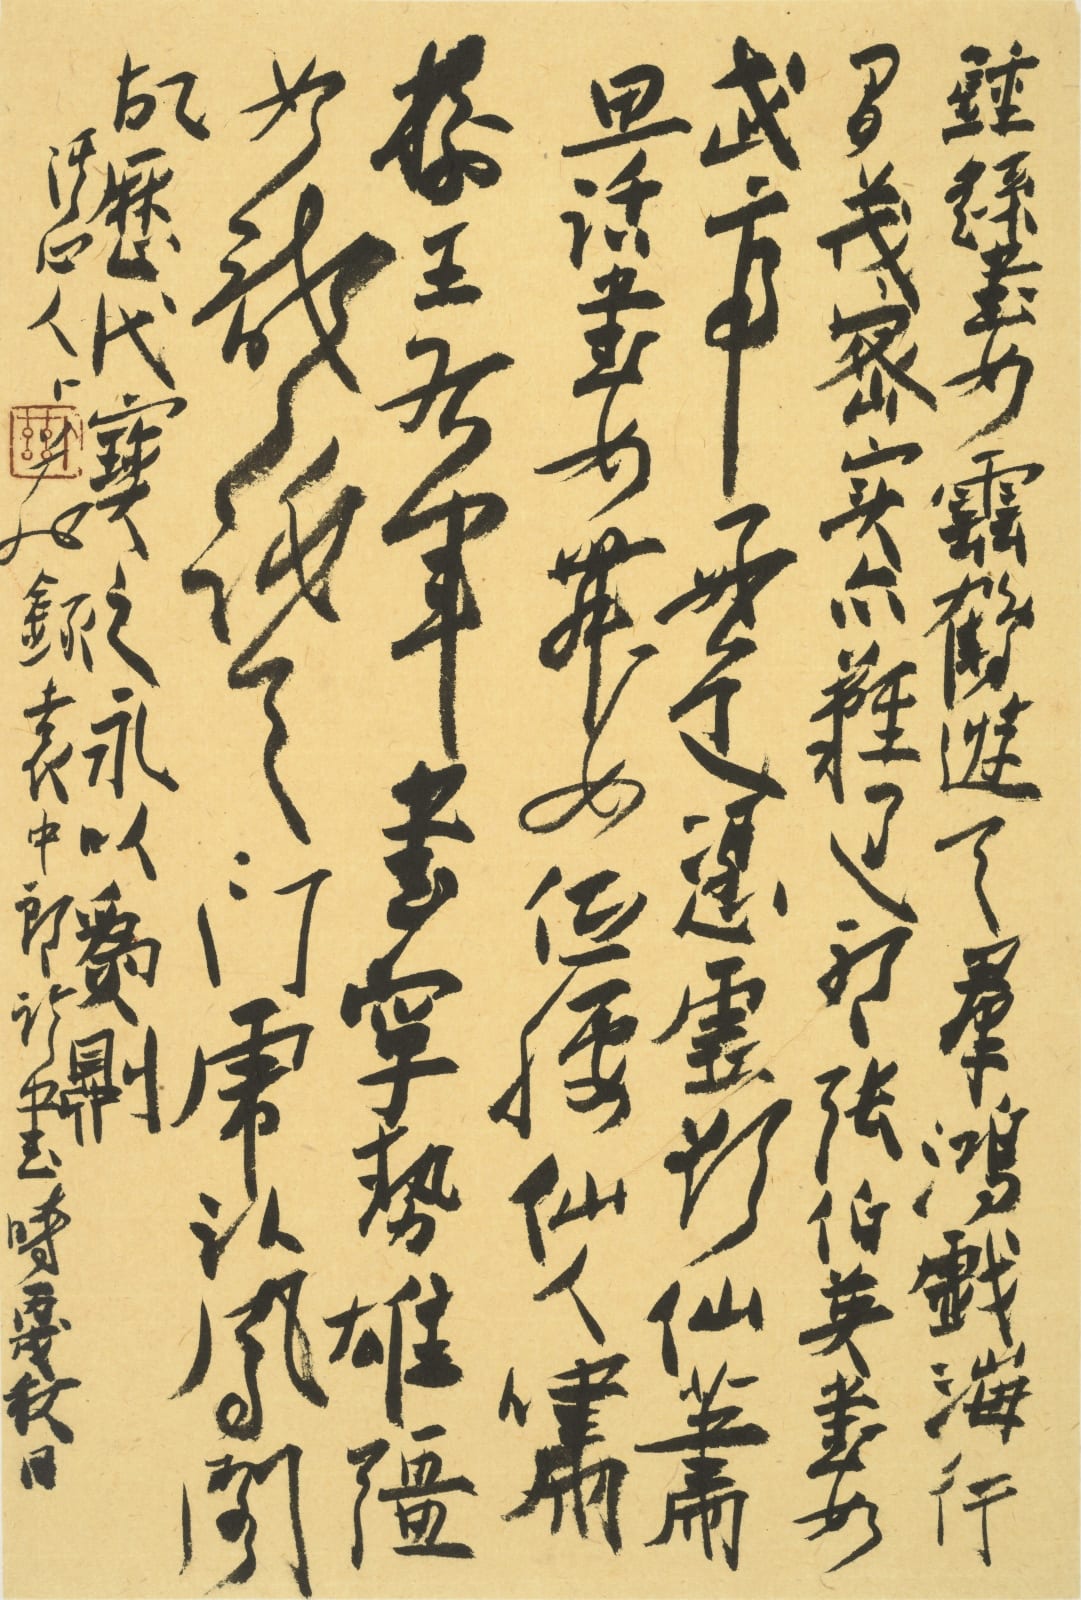 鍾繇書如雲鶴遊天羣鴻戲海行
間茂密實亦難過耶張伯英書如
武帝道憑虛欲仙蕭
思話書如舞女低腰仙人嘯
樹王右軍書字勢雄強
如龍跳天門虎臥鳳閣
故歷代寶之永以為
人錄袁中郎論書時秋日